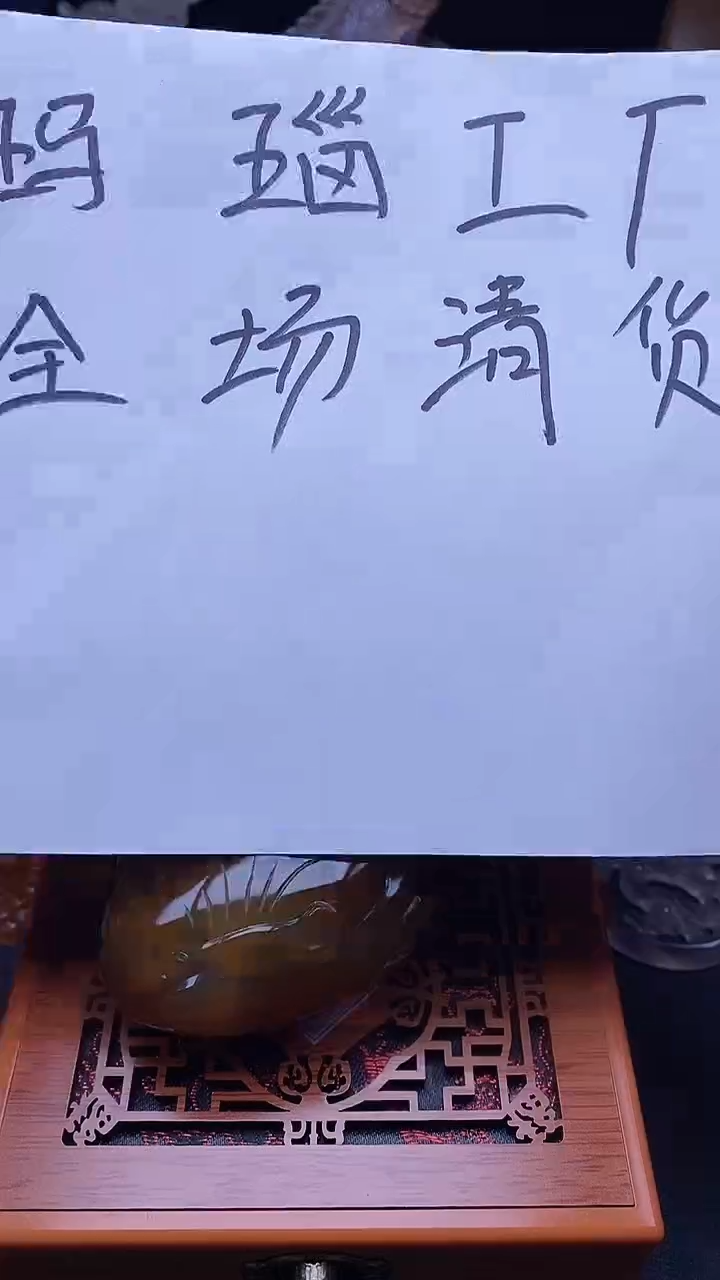 玛瑙工厂
全场清货